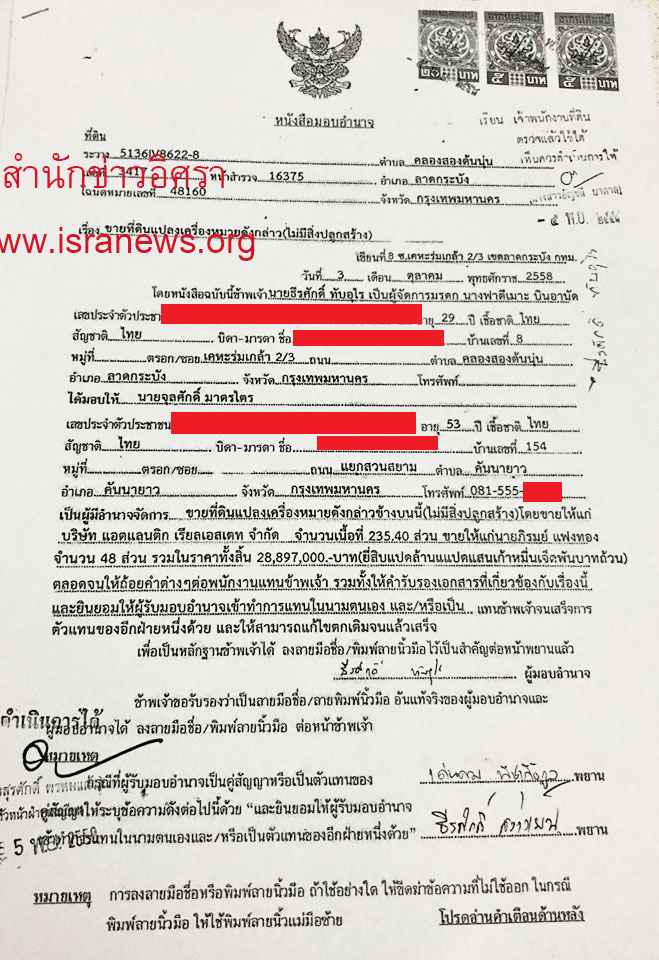 ๒๐ บาท ๕ บาท ๕ บาท
หนังสือมอบอำนาจ
เรียน เจ้าพนักงานที่ดิน
ตรวจแล้วใช้ได้
เห็นควรดำเนินการให้
ที่ดิน
ระวาง 5136IV8622-8 ตำบล คลองสองต้นนุ่น
เลขที่ 3417 หน้าสำรวจ 16375 อำเภอ ลาดกระบัง
โฉนดหมายเลขที่ 48160 จังหวัด กรุงเทพมหานคร
สำนักข่าวอิศรา
www.isranews.org
- ๕ พ.ย. ๒๕๕๘
เรื่อง ขายที่ดินแปลงเครื่องหมายดังกล่าว(ไม่มีสิ่งปลูกสร้าง)
เขียนที่ 8 ซ.เคหะร่มเกล้า 2/3 เขตลาดกระบัง กทม.
วันที่ 3 เดือน ตุลาคม พุทธศักราช 2558
โดยหนังสือฉบับนี้ข้าพเจ้า นายธีรศักดิ์ ทับอุไร เป็นผู้จัดการมรดก นางฟาตีเมาะ บินอานัด
เลขประจำตัวประชา อายุ 29 ปี เชื้อชาติ ไทย
สัญชาติ ไทย บิดา-มารดา ชื่อ บ้านเลขที่ 8
หมู่ที่ ตรอก/ซอย เคหะร่มเกล้า 2/3 ถนน ตำบล คลองสองต้นนุ่น
อำเภอ ลาดกระบัง จังหวัด กรุงเทพมหานคร โทรศัพท์
ได้มอบให้ นายจุลศักดิ์ มาตรไตร
เลขประจำตัวประชาชน อายุ 53 ปี เชื้อชาติ ไทย
สัญชาติ ไทย บิดา-มารดา ชื่อ บ้านเลขที่ 154
หมู่ที่ ตรอก/ซอย ถนน แยกสวนสยาม ตำบล คันนายาว
อำเภอ คันนายาว จังหวัด กรุงเทพมหานคร โทรศัพท์ 081-555-
เป็นผู้มีอำนาจจัดการ ขายที่ดินแปลงเครื่องหมายดังกล่าวข้างบนนี้(ไม่มีสิ่งปลูกสร้าง)โดยขายให้แก่
บริษัท แอตแลนติก เรียลเอสเตท จำกัด จำนวนเนื้อที่ 235.40 ส่วน ขายให้แก่นายภิรมย์ แฟงทอง
จำนวน 48 ส่วน รวมในราคาทั้งสิ้น 28,897,000.-บาท(ยี่สิบแปดล้านแแปดแสนเก้าหมื่นเจ็ดพันบาทถ้วน)
ตลอดจนให้ถ้อยคำต่างๆต่อพนักงานแทนข้าพเจ้า รวมทั้งให้คำรับรองเอกสารที่เกี่ยวข้องกับเรื่องนี้
และยินยอมให้ผู้รับมอบอำนาจเข้าทำการแทนในนามตนเอง และ/หรือเป็น แทนข้าพเจ้าจนเสร็จการ
ตัวแทนของอีกฝ่ายหนึ่งด้วย และให้สามารถแก้ไขตกเติมจนแล้วเสร็จ
เพื่อเป็นหลักฐานข้าพเจ้าได้ ลงลายมือชื่อ/พิมพ์ลายนิ้วมือไว้เป็นสำคัญต่อหน้าพยานแล้ว
ผู้มอบอำนาจ
ข้าพเจ้าขอรับรองว่าเป็นลายมือชื่อ/ลายพิมพ์นิ้วมือ อันแท้จริงของผู้มอบอำนาจและ
ดำเนินการได้
ผู้มอบอำนาจได้ ลงลายมือชื่อ/พิมพ์ลายนิ้วมือ ต่อหน้าข้าพเจ้า
หมายเหตุ
กรณีที่ผู้รับมอบอำนาจเป็นคู่สัญญาหรือเป็นตัวแทนของ พยาน
คู่สัญญาให้ระบุข้อความดังต่อไปนี้ด้วย “และยินยอมให้ผู้รับมอบอำนาจ
เข้าทำการแทนในนามตนเองและ/หรือเป็นตัวแทนของอีกฝ่ายหนึ่งด้วย” พยาน
หมายเหตุ การลงลายมือชื่อหรือพิมพ์ลายนิ้วมือ ถ้าใช้อย่างใด ให้ขีดฆ่าข้อความที่ไม่ใช้ออก ในกรณี
พิมพ์ลายนิ้วมือ ให้ใช้พิมพ์ลายนิ้วแม่มือซ้าย โปรดอ่านคำเตือนด้านหลัง